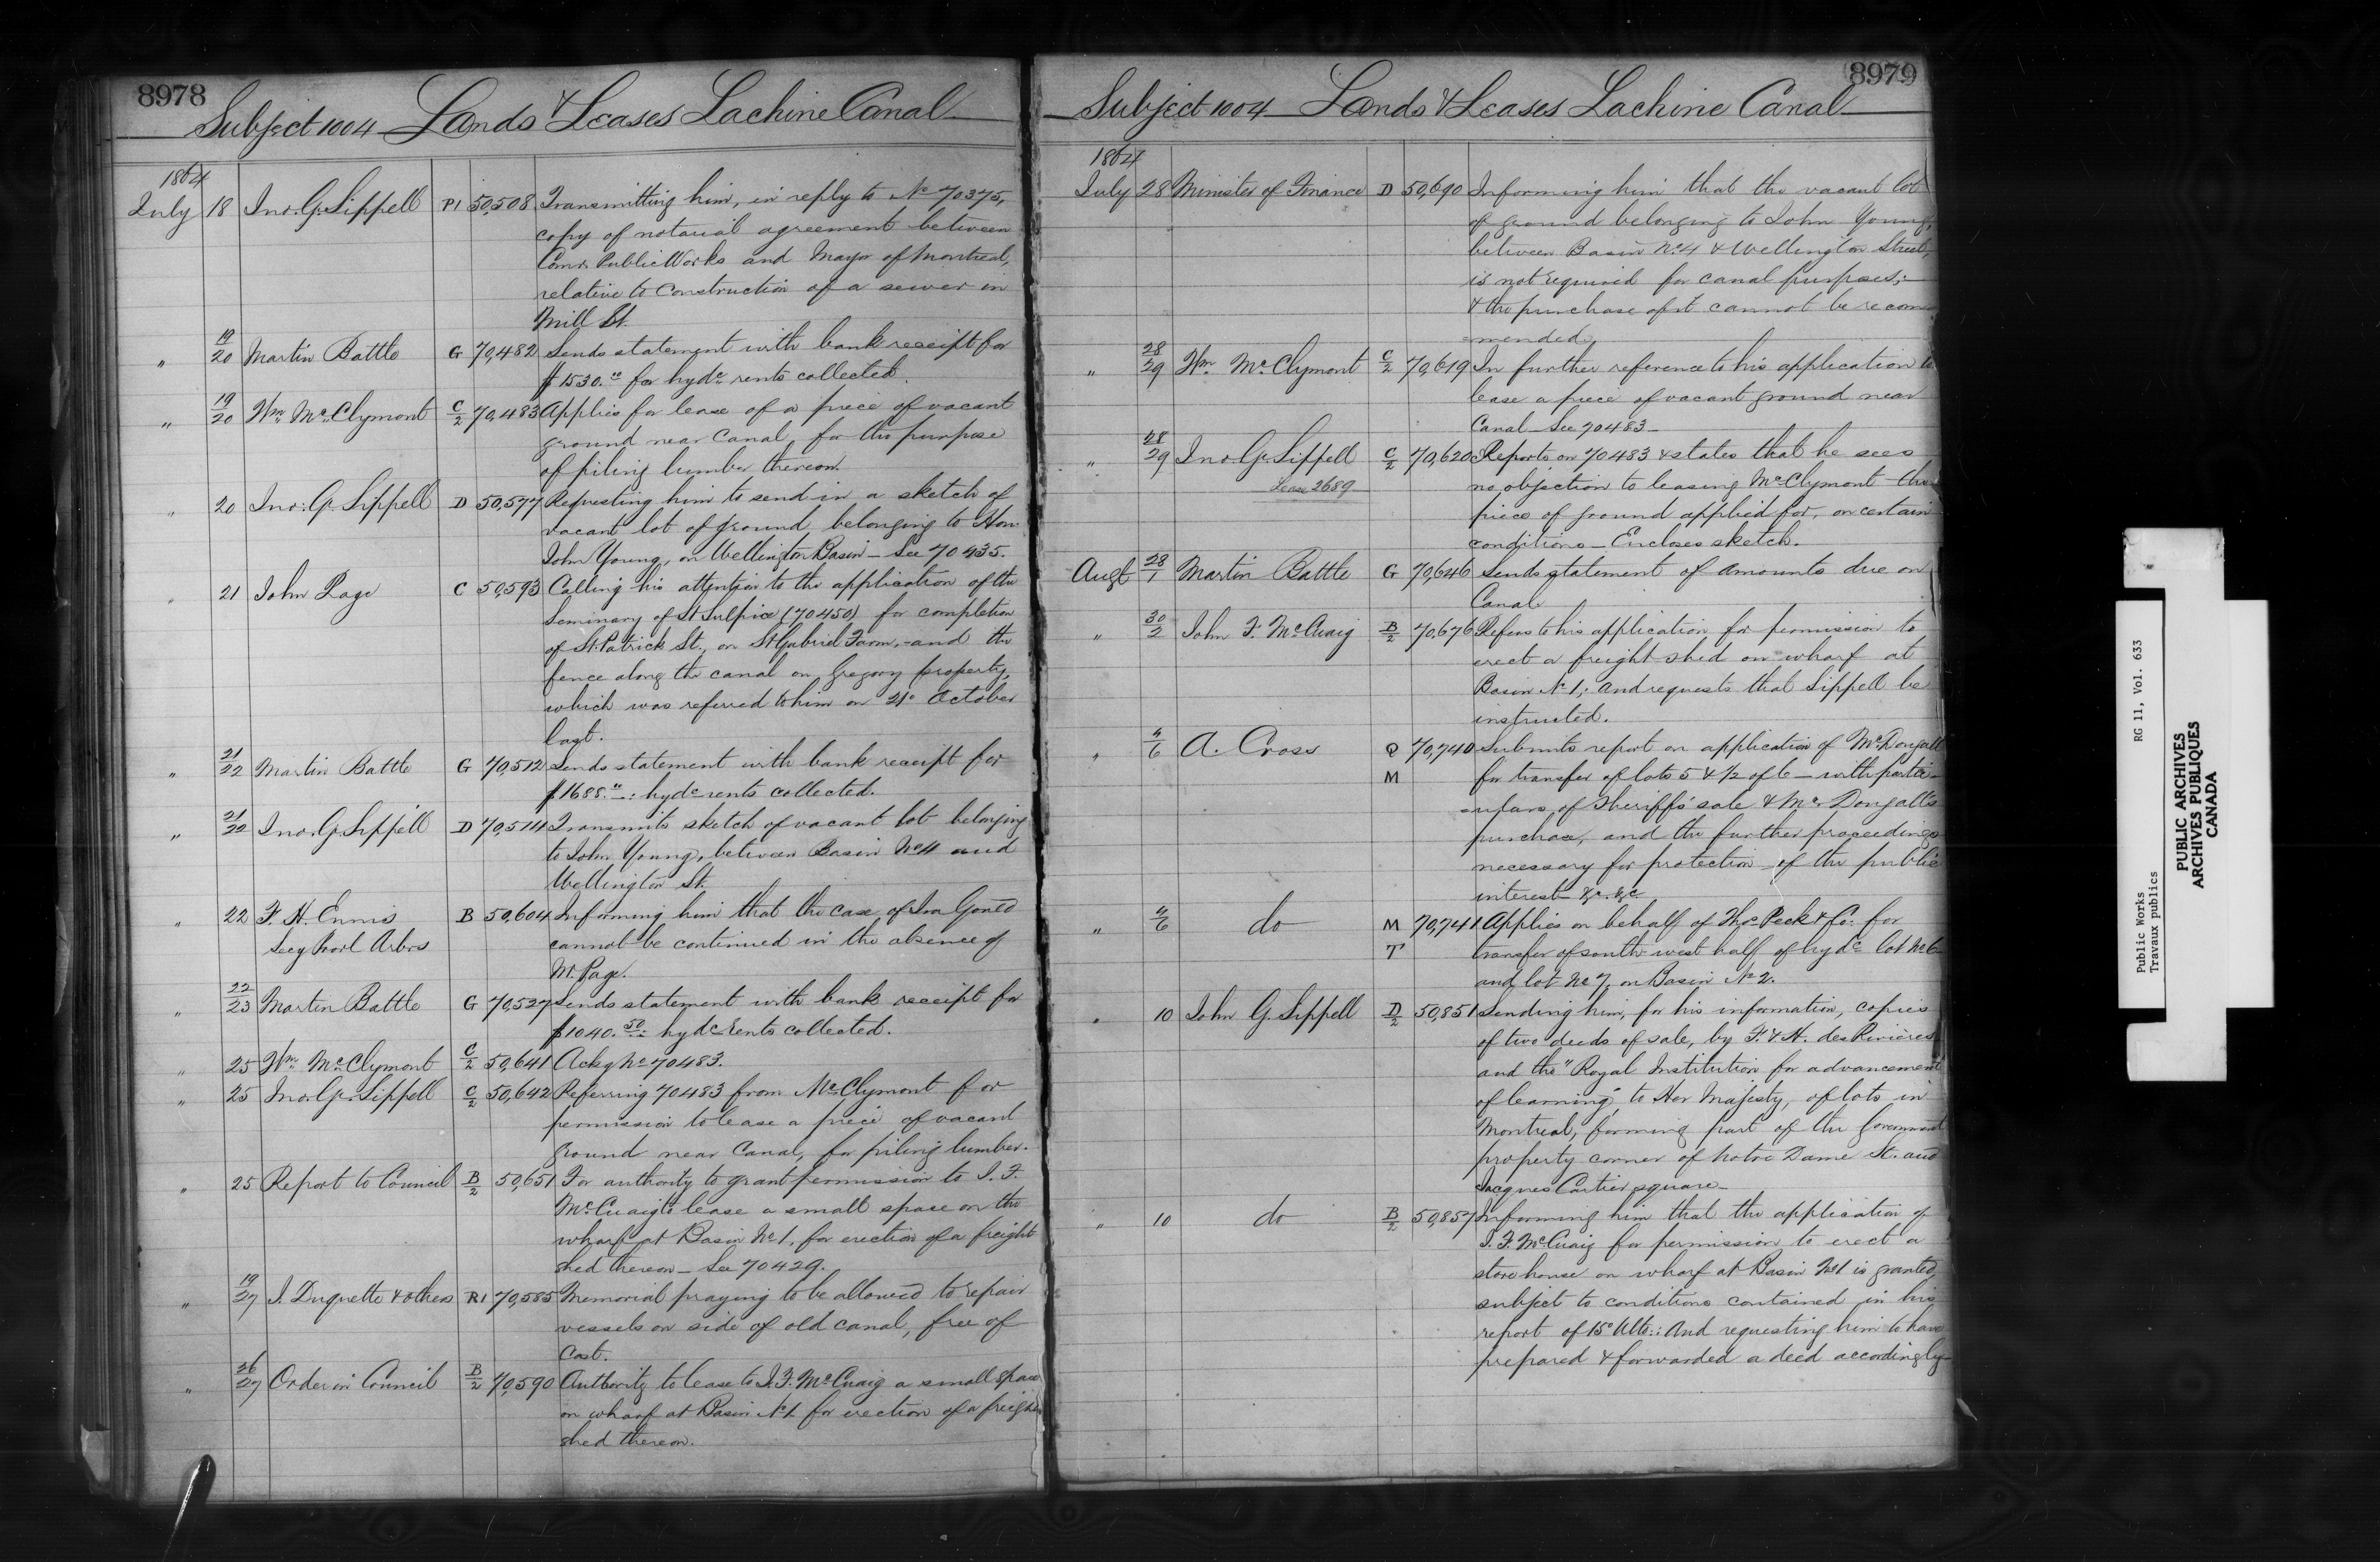 8978
Subject 1004 Lands & Leases Lachine Canal
1864
July 18 Jno. G. Sippell P1 50,508 Transmitting him, in reply to No 70375,
copy of notarial agreement between
Comr. Public Works and Mayor of Montreal,
relative to construction of a sewer in
Mill St.
" 19/20 Martin Battle G 70,482 Sends statement with bank receipt for
$1530.00 for hydc rents collected.
" 19/20 Wm. McClymont C/2 70,483 Applies for lease of a piece of vacant
ground near Canal, for the purpose
of piling lumber thereon.
" 20 Jno. G. Sippell D 50,577 Requesting him to send in a sketch of
vacant lot of ground belonging to Hon.
John Young, on Wellington Basin - See 70435.
" 21 John Page C 50,593 Calling his attention to the application of the
Seminary of St Sulpice (70450) for completion
of St. Patrick St., on St Gabriel Farm, - and the
fence along the canal on Gregory property,
which was referred to him on 21o October
last.
" 21/22 Martin Battle G 70,512 Sends statement with bank receipt for
$1688.00: hydc rents collected.
" 21/22 Jno. G. Sippell D 70,514 Transmits sketch of vacant lot belonging
to John Young, between Basin No 4 and
Wellington St.
" 22 F. H. Ennis B 50,604 Informing him that the case of Ira Gould
Secy Provl Arbrs cannot be continued in the absence of
Mr. Page.
" 22/23 Martin Battle G 70,527 Sends statement with bank receipt for
$1040.50: hydc rents collected.
" 25 Wm. McClymont C/2 50,641 Ackg No 70483.
" 25 Jno. G. Sippell C/2 50,642 Referring 70483 from McClymont for
permission to lease a piece of vacant
ground near Canal, for piling lumber.
" 25 Report to Council B/2 50,651 For authority to grant permission to J. F.
McCuaig to lease a small space on the
wharf at Basin No 1, for erection of a freight
shed thereon - See 70429.
" 19/27 J. Duquette & others R1 70,585 Memorial praying to be allowed to repair
vessels on side of old canal, free of
cost.
" 26/27 Order in Council B/2 70,590 Authority to lease to J. F. McCuaig a small space
on wharf at Basin No 1 for erection of a freight
shed thereon.
8979
Subject 1004 Lands & Leases Lachine Canal
1864
July 28 Minister of Finance D 50,690 Informing him that the vacant lot
of ground belonging to John Young,
between Basin No 4 & Wellington Street,
is not required for canal purposes; -
& the purchase of it cannot be recom
=mended.
" 28/29 Wm. McClymont C/2 70,619 In further reference to his application to
lease a piece of vacant ground near
Canal - See 70483 -
" 28/29 Jno. G. Sippell C/2 70,620 Reports on 70483 & states that he sees
Lease 2689 no objection to leasing McClymont the
piece of ground applied for, on certain
conditions - Encloses sketch.
Augt 28/1 Martin Battle G 70,646 Sends statement of amounts due on
Canal
" 30/2 John F. McCuaig B/2 70,676 Refers to his application for permission to
erect a freight shed on wharf at
Basin No 1; and requests that Sippell be
instructed.
" 4/6 A. Cross Q 70,740 Submits report on application of McDougall
M for transfer of lots 5 & 1/2 of 6 - with partic-
=ulars of Sheriff's sale & Mc Dougall's
purchase, and the further proceedings
necessary for protection of the public
interest &c. &c.
" 4/6 do M 70,741 Applies on behalf of Thos Peck & Co. for
T transfer of south-west half of hydc lot No 6
and lot No 7, on Basin No 2.
" 10 John G. Sippell D/2 50,851 Sending him, for his information, copies
of two deeds of sale, by F. & H. des Rivières
and the "Royal Institution for advancement
of learning," to Her Majesty, of lots in
Montreal, forming part of the Government
property corner of Notre Dame St. and
Jacques Cartier square -
" 10 do B/2 50,857 Informing him that the application of
J. F. McCuaig for permission to erect a
store house on wharf at Basin No 1 is granted,
subject to conditions contained in his
report of 15o Ulto: And requesting him to have
prepared & forwarded a deed accordingly -
Public Works RG 11, Vol. 633
Travaux publics
PUBLIC ARCHIVES
ARCHIVES PUBLIQUES
CANADA